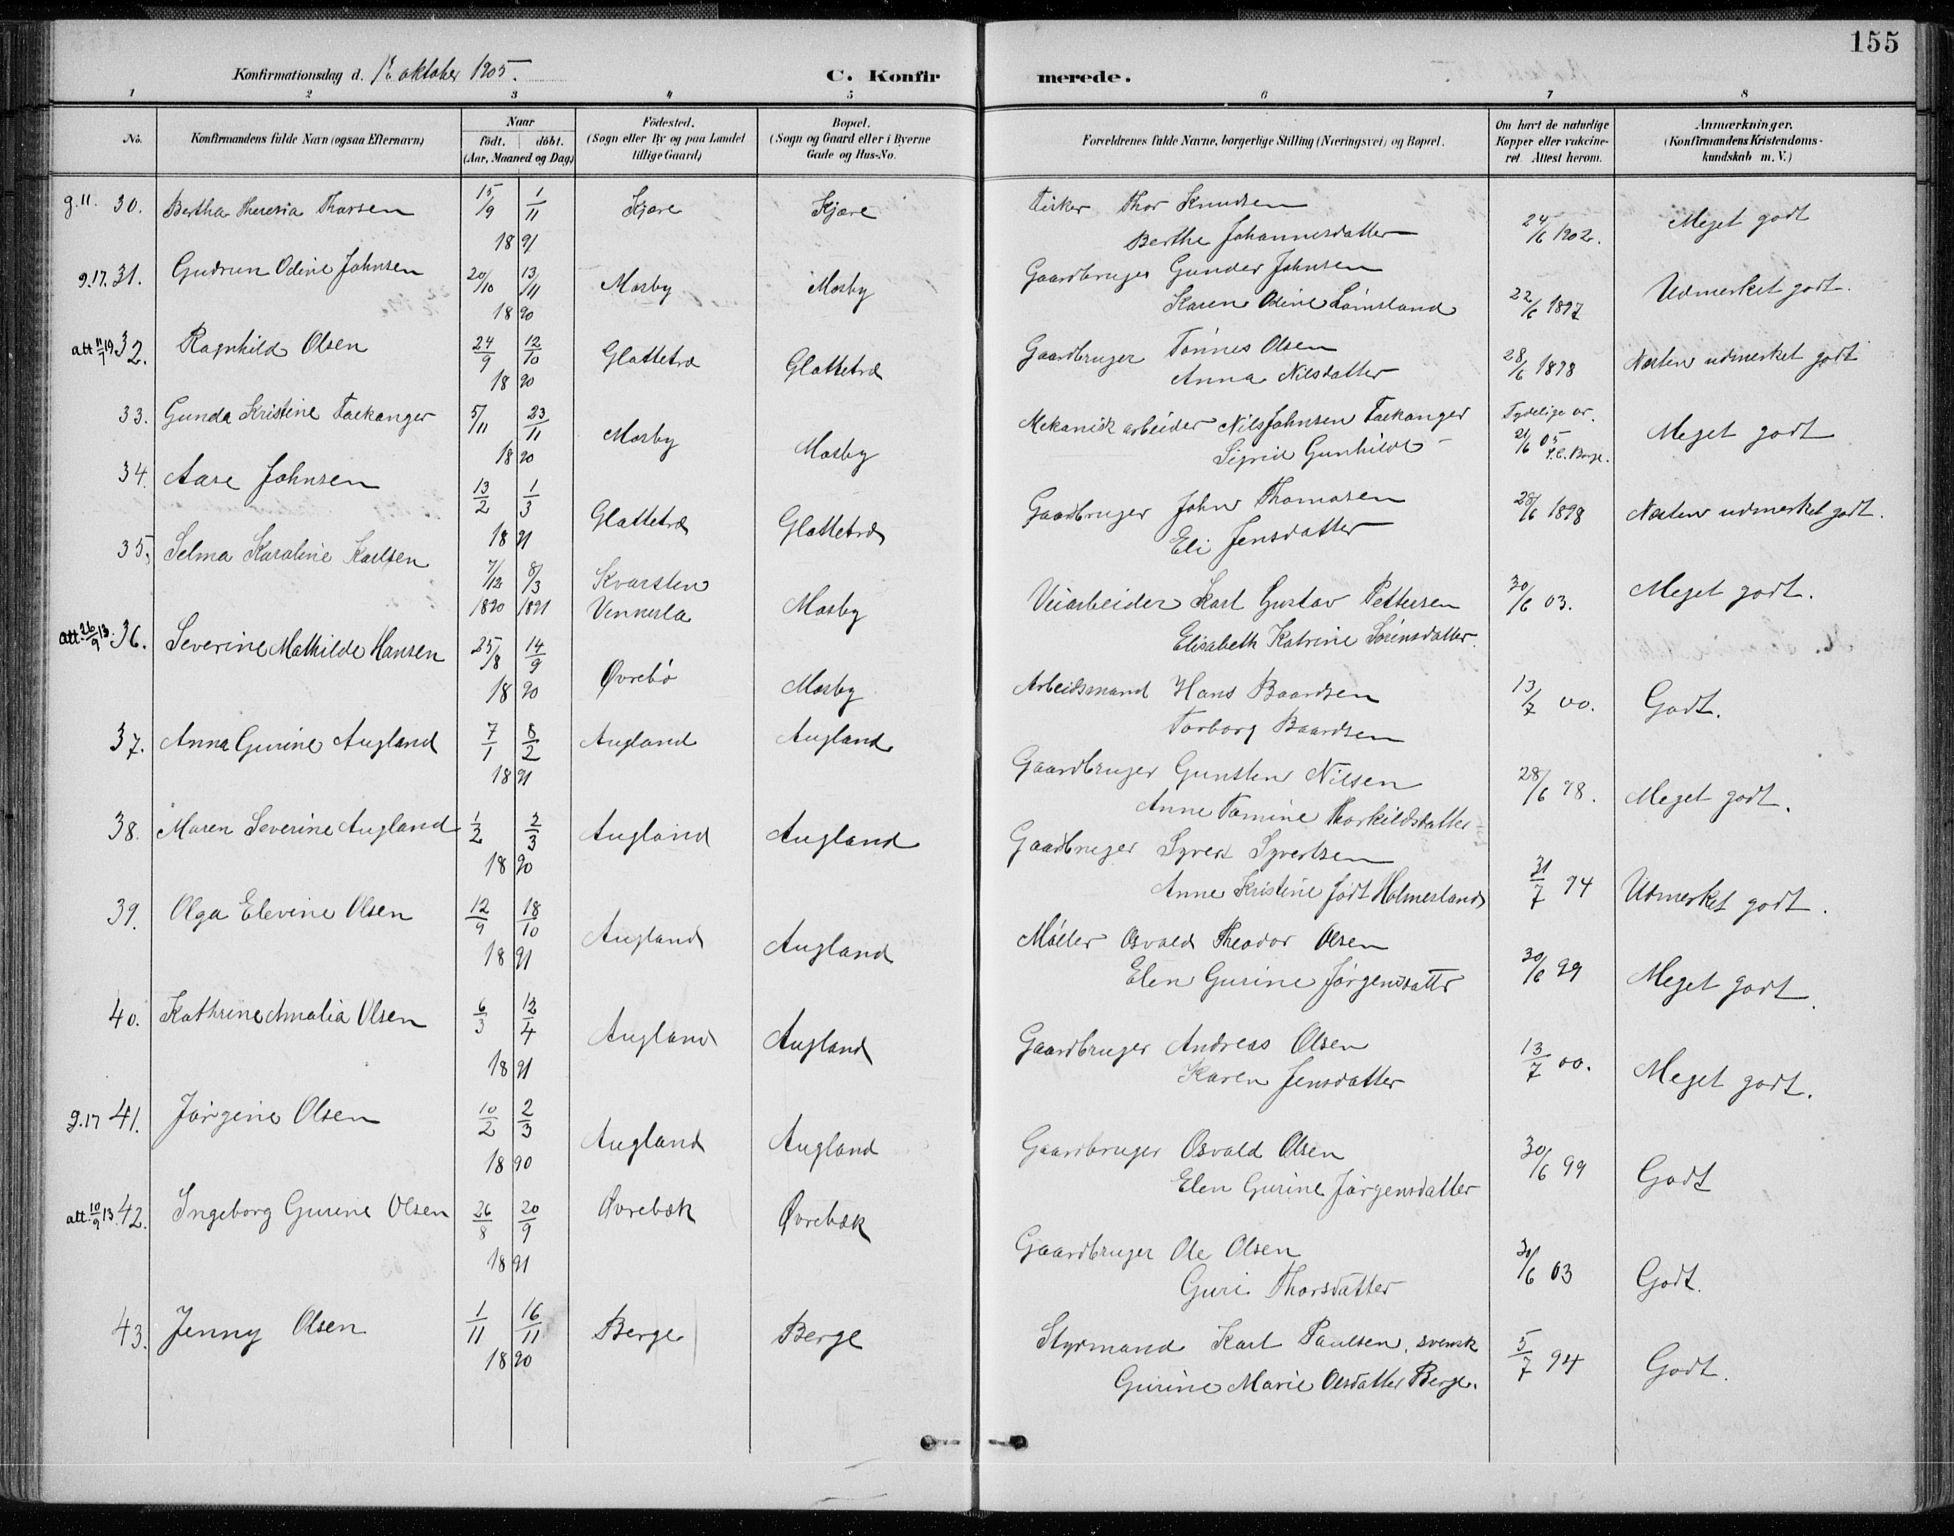 155
Konfirmationsdag d. 1 oktober 1905.
C. Konfirmerede.
1 2 3 4 5 6 7 8
No.
Konfirmandens fulde Navn (ogsaa Efternavn)
Naar født. døbt. (Aar, Maaned og Dag)
Fødested. (Sogn eller By og paa Landet tillige Gaard)
Bopæl. (Sogn og Gaard eller i Byerne Gade og Hus-No.
Forældrenes fulde Navne, borgerlige Stilling (Næringsvei) og Bopæl.
Om havt de naturlige Kopper eller vakcineret. Attest herom.
Anmærkninger. (Konfirmandens Kristendomskundskab m. V.)
g. 11. 30. Bertha Theresia Thorsen 15/9 1/11 1891 Kjære Kjære Fisker Thor Knudsen
Berthe Johannesdatter 24/6 1902. Meget godt
g. 17. 31. Gudrun Odine Johnsen 20/10 13/11 1890 Mosby Mosby Gaardbruger Gunder Johnsen
Karen Odine Lømsland 22/6 1897 Udmerket godt.
att 11/1 19 32. Ragnhild Olsen 24/9 12/10 1890 Glattetræ Glattetræ Gaardbruger Tønnes Olsen
Anna Nilsdatter 28/6 1898 Næsten udmerket godt
33. Gunda Kristine Faekanger 5/11 23/11 1890 Mosby Mosby Mekanisk arbeider Nils Johnsen Faekanger
Sigrid Gunhilde Tydelige ar. 21/6 05 Meget godt
34. Aase Johnsen 13/2 1/3 1891 Glattetræ Glattetræ Gaardbruger John Thomasen
Eli Jensdatter 28/6 1898 Næsten udmerket godt.
35. Selma Karoline Karlsen 7/12 1890 8/3 1891 Kvarsten Vennesla Mosby Veiarbeider Karl Gustav Pettersen
Elisabeth Katrine Sørensdatter. 30/6 03. Meget godt.
att. 26/9 13. 36. Severine Mathilde Hansen 25/8 14/9 1890 Øvrebø Mosby Arbeidsmand Hans Baardsen
Torborg Baardsen 13/7 00. Godt.
37. Anna Gurine Augland 7/1 8/2 1891 Augland Augland Gaardbruger Gunsten Nilsen
Anne Tomine Thorkildsdatter 28/6 98. Meget godt.
38. Maren Severine Augland 1/2 2/3 1890 Augland Augland Gaardbruger Syvert Syvertsen
Anne Kristine født Holmesland 31/7 94 Udmerket godt.
39. Olga Elevine Olsen 12/9 18/10 1891 Augland Augland Møller Osvald Theodor Olsen
Elen Gurine Jørgensdattr 30/6 99 Meget godt.
40. Kathrine Amalia Olsen 6/3 12/4 1891 Augland Augland Gaardbruger Andreas Olsen
Karen Jensdatter 13/7 00. Meget godt.
g. 17 41. Jørgine Olsen 10/2 2/3 1890 Augland Augland Gaardbruger Osvald Olsen
Elen Gurine Jørgensdatter 30/6 99 Godt
att. 10/9 13. 42. Ingeborg Gurine Olsen 26/8 20/9 1891 Øvrebæk Øvrebæk Gaardbruger Ole Olsen
Guri Thorsdatter 30/6 03 Godt.
43. Jenny Olsen 1/11 16/11 1890 Berge Berge Styrmand Karl Paulsen, svensk
Gurine Marie Olsdatter Berge. 5/7 94 Godt.